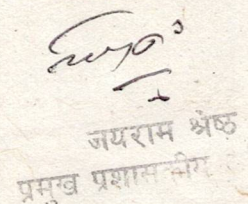 जयराम श्रेष्ठ
प्रमुख प्रशासकीय